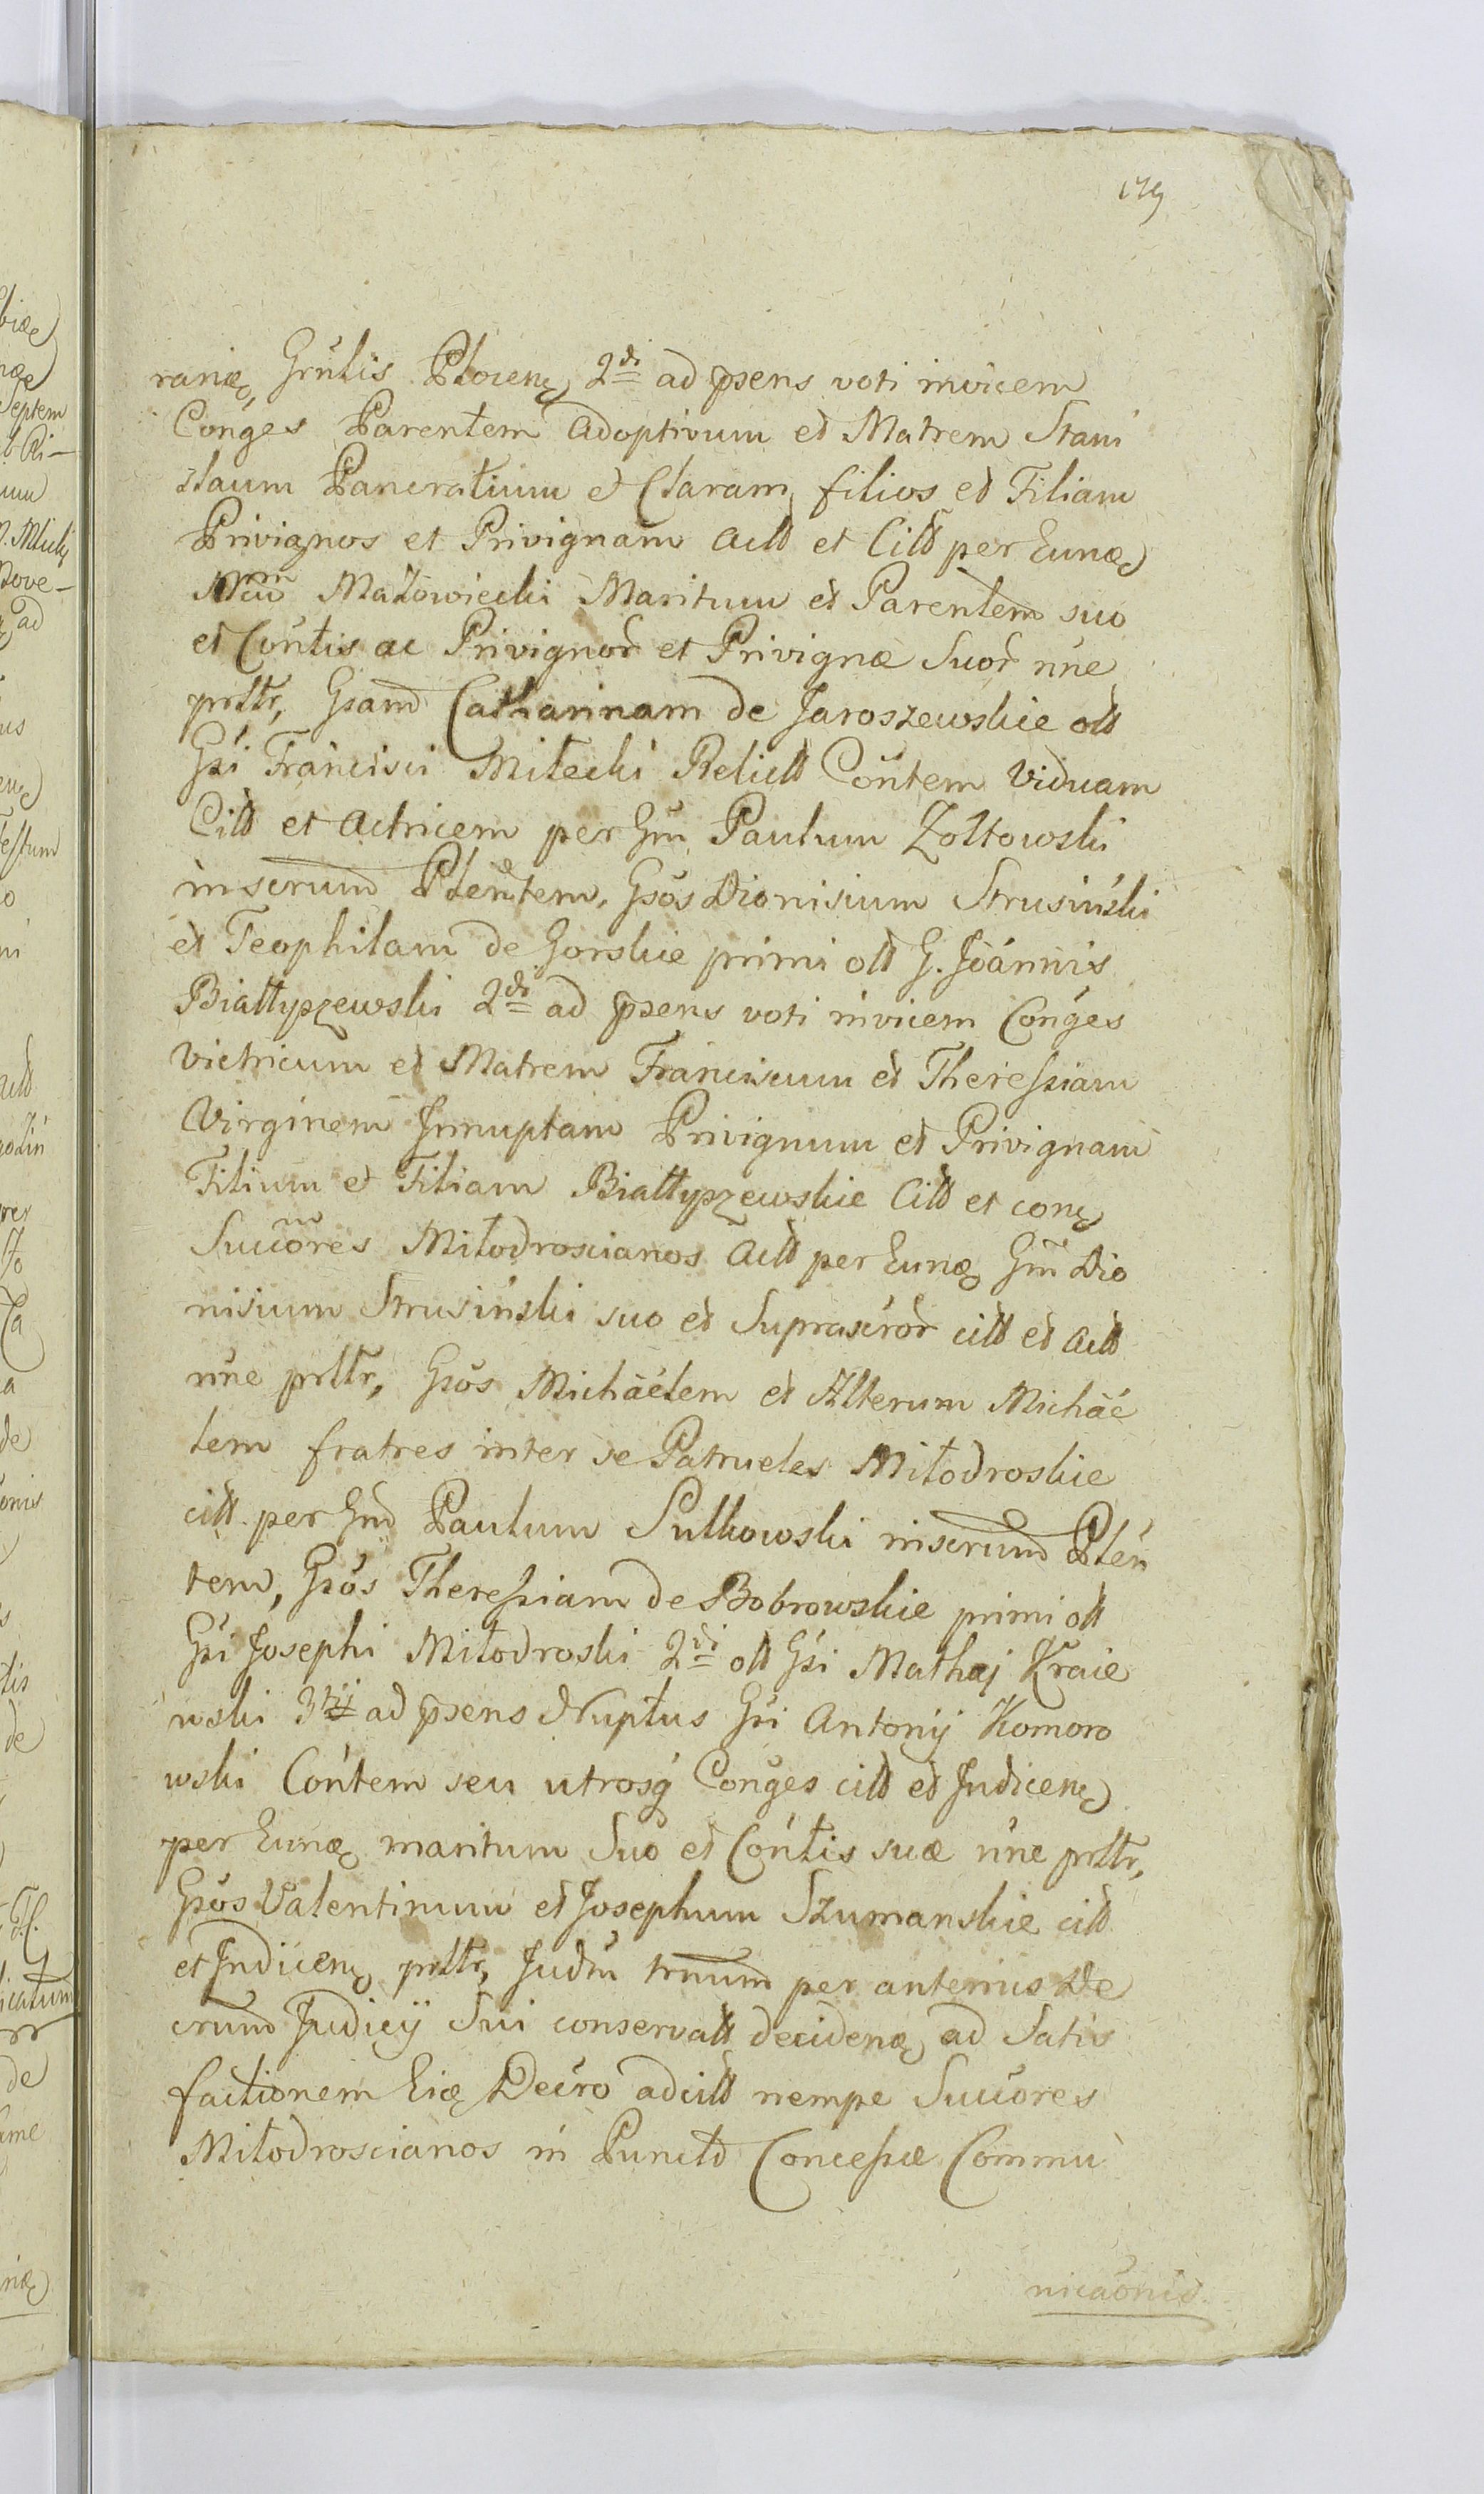 179
raneę, Grńlis Plocenę 2di ad psens voti invicem
Conges Parentem adoptivum et Matrem Stani
slaum Pancratium et Claram filios et Filiam
Privignos et Privignam actt et Citt per Eunę
Mazowiecki Maritum et Parentem suo
et Cońtis ac Privignor et Privignæ Suor nńe
prttr, Gsam Catharinam de Jaroszewskie ott
Gsi Francisci Miłecki Relictt Cońtem viduam
Citt et actricem per Gm Paulum Zołtowski
inscrum Pleńtem, Gsos Dionisium Strusiński
et Teophilam de Gorskie primi ott G. Joánnis
Białłyszewski 2di ad psens voti invicem Conges
victricum et Matrem Franciscum et Theressiam
Virginem Innuptam Privignum et Privignam
Filium et Filiam Białłyszewskie Citt et conę
Succores Miłodroscianos actt per Eunę Gm Dio
nisium Strusiński suo et Suprascror citt et actt
nńe prttr, Gsos Micháelem et Alterum Micháe
lem fratres inter se Patrueles Miłodroskie
citt per Gm Paulum Sulkowski inscrum Pleń
tem, Gsos Theressiam de Bobrowskie primi ott
Gsi Josephi Miłodroski 2di ott Gsi Mathæj Kraie
wski 3tij ad psens Nuptus Gsi Antonij Komoro
wski Cońtem seu utrosq Conges citt et Indicenę
per Eunę maritum Suo et Cońtis suæ nńe prttr,
Gsos Valentinum et Josephum Szumanskie citt
et Indicenę prttr, Judm trnum per anterius De
crum Judicij Sui conservatt decidenę ad Satis
factionem Eię Decro adcitt nempe Succores
Miłodroscianos in Puncto Concessæ Commu
nicaonis